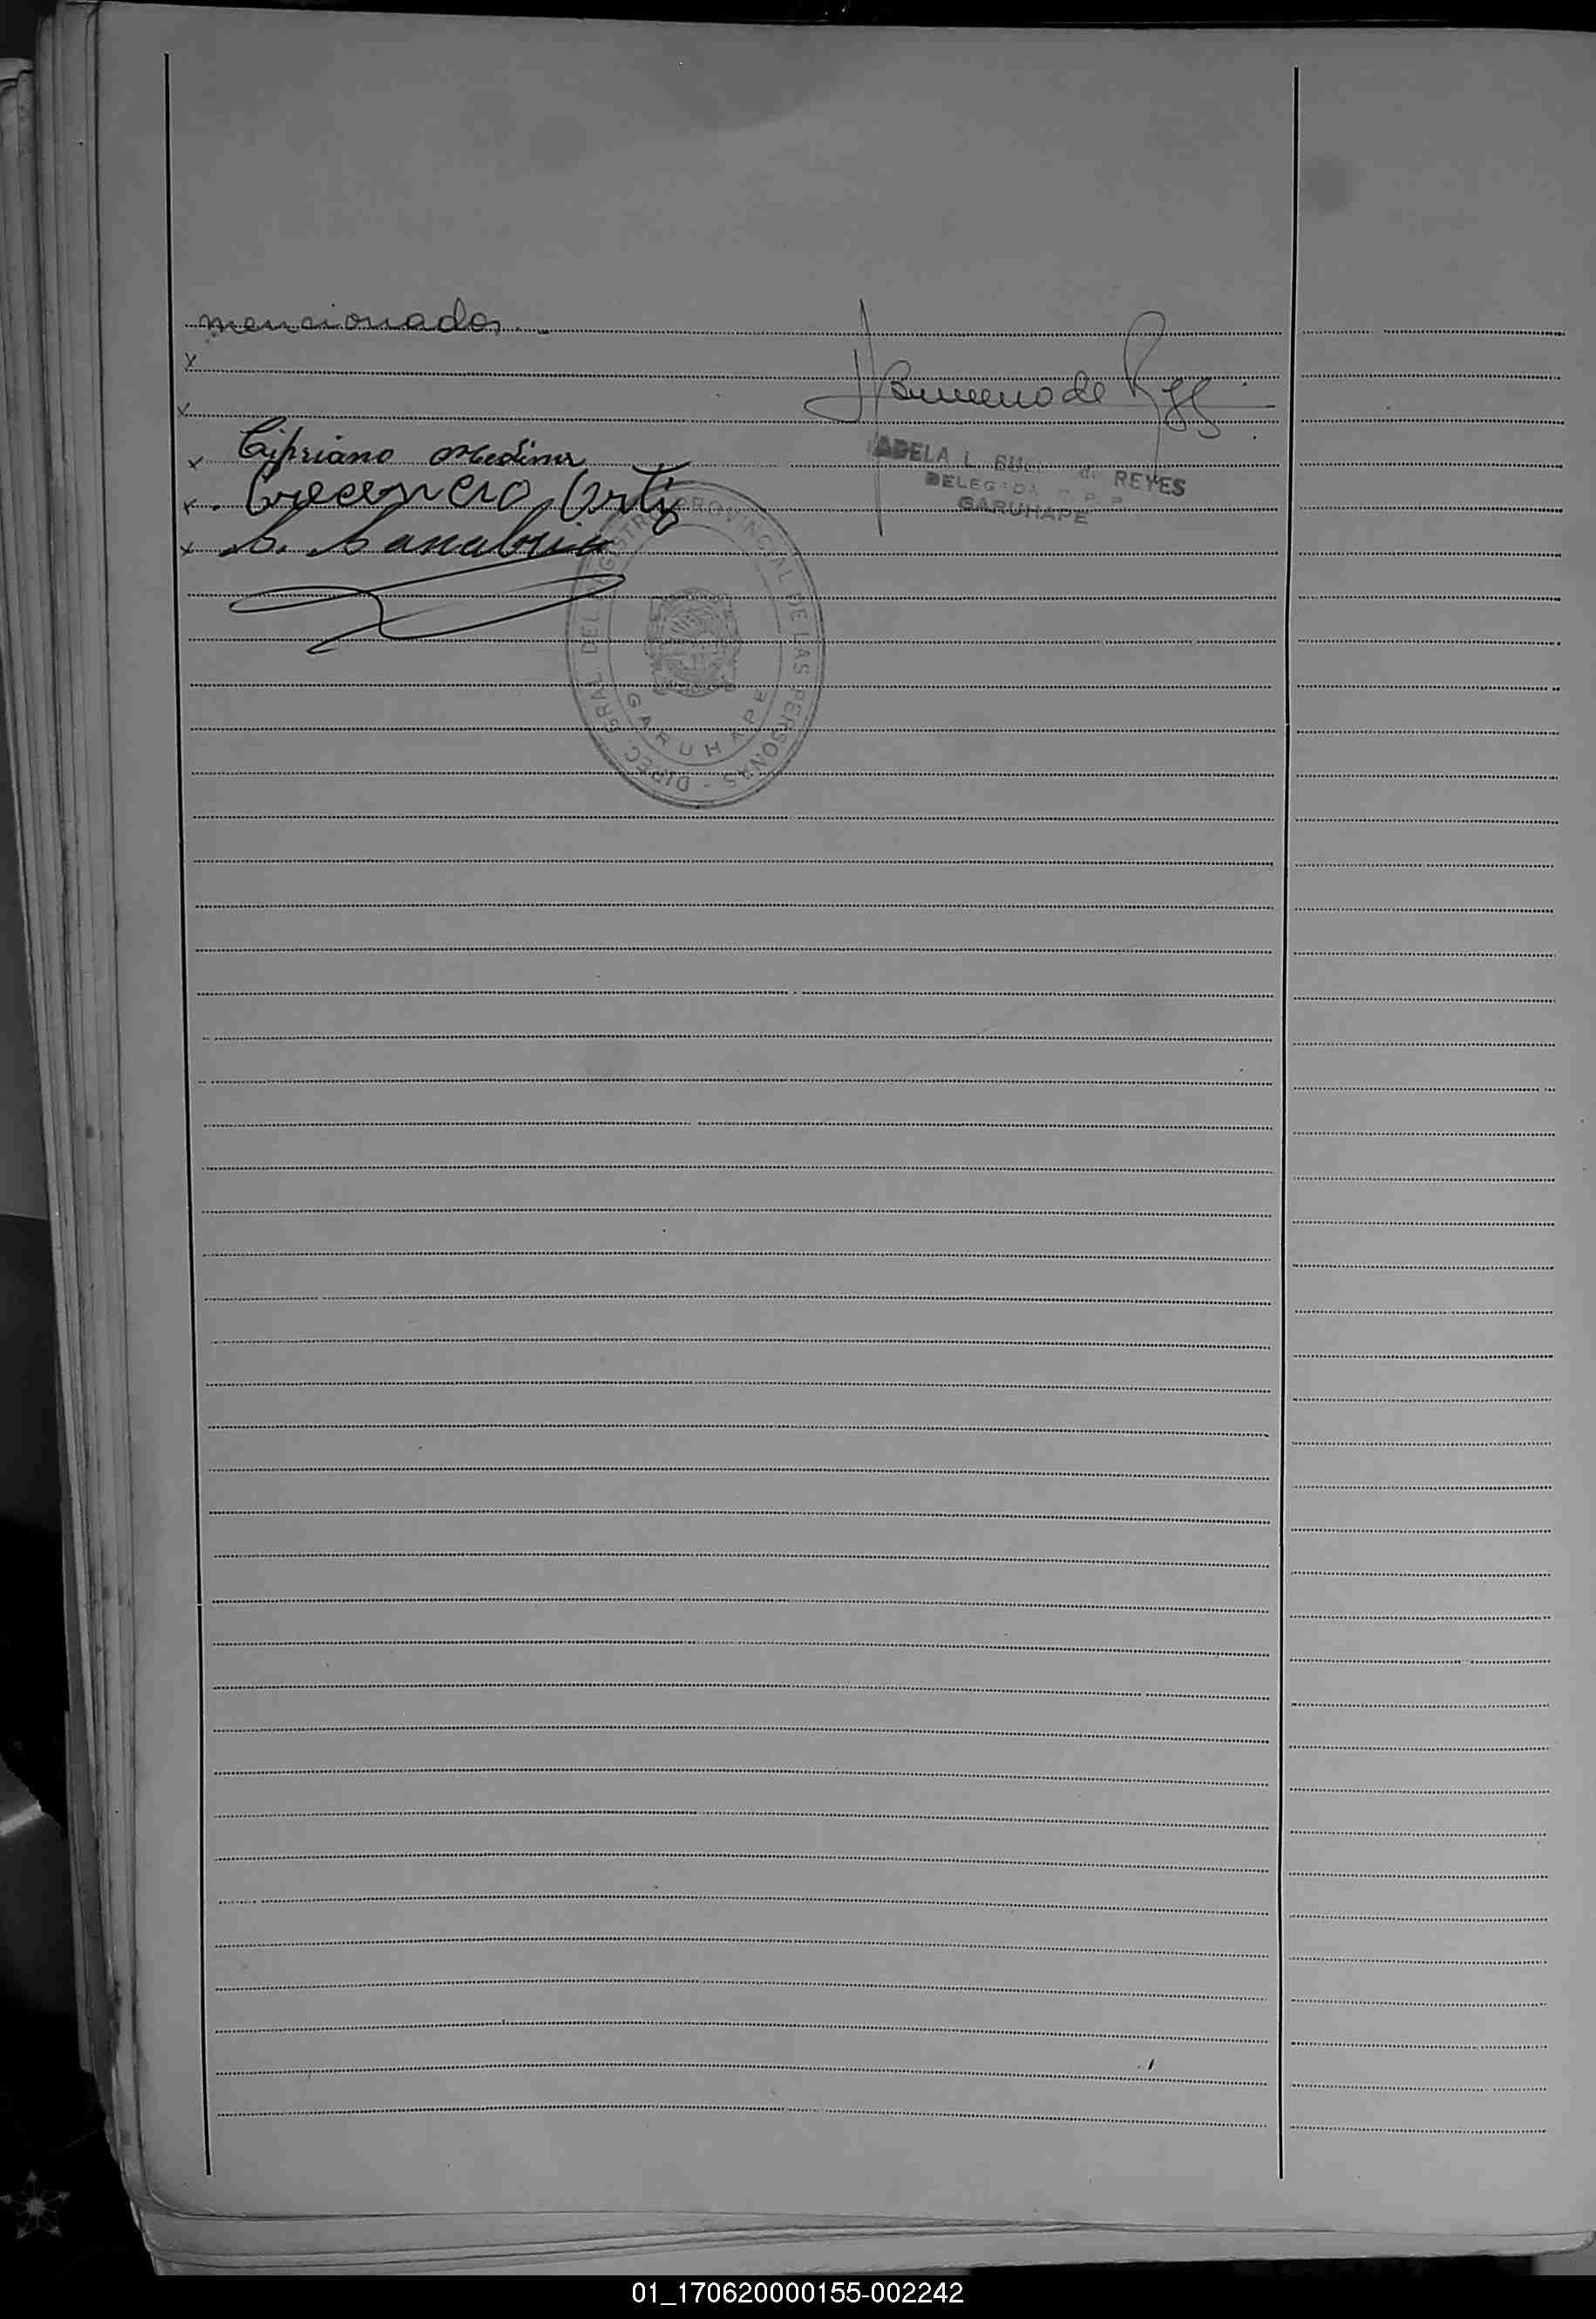 mencionados.-
x
x
x Cipriano Medina
x Crecencio Ortiz
x S. Sanabria
Bueno de
ADELA L. REYES
DELEGADA R. P. P.
GARUHAPE
DIREC. GRAL. DEL REGISTRO PROVINCIAL DE LAS PERSONAS -
GARUHAPE
01_170620000155-002242